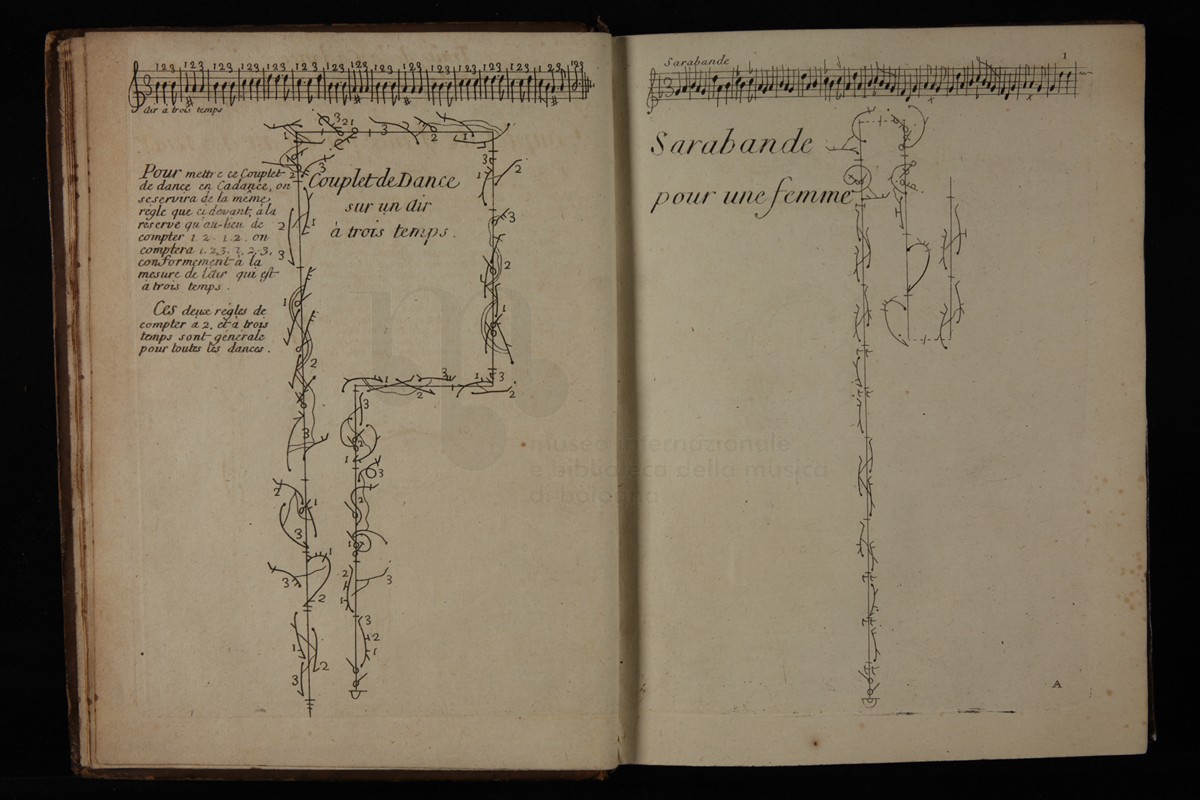 123 123 123 123 123 123 123 123 123 123 123 123 123
air à trois temps
Pour mettre ce Couplet
de dance en Cadance, on
se servira de la meme
regle que ci devant, a la
reserve qu'au-lieu de
compter 1. 2. 1. 2. on
comptera 1. 2. 3. 1. 2. 3.
conformement à la
mesure de l'air qui est
a trois temps.
Ces deux regles de
compter à 2, et à trois
temps sont generale
pour toutes les dances.
Couplet de Dance
sur un air
à trois temps.
Sarabande
1
Sarabande
pour une femme
A
museo internazionale
e biblioteca della musica
di bologna